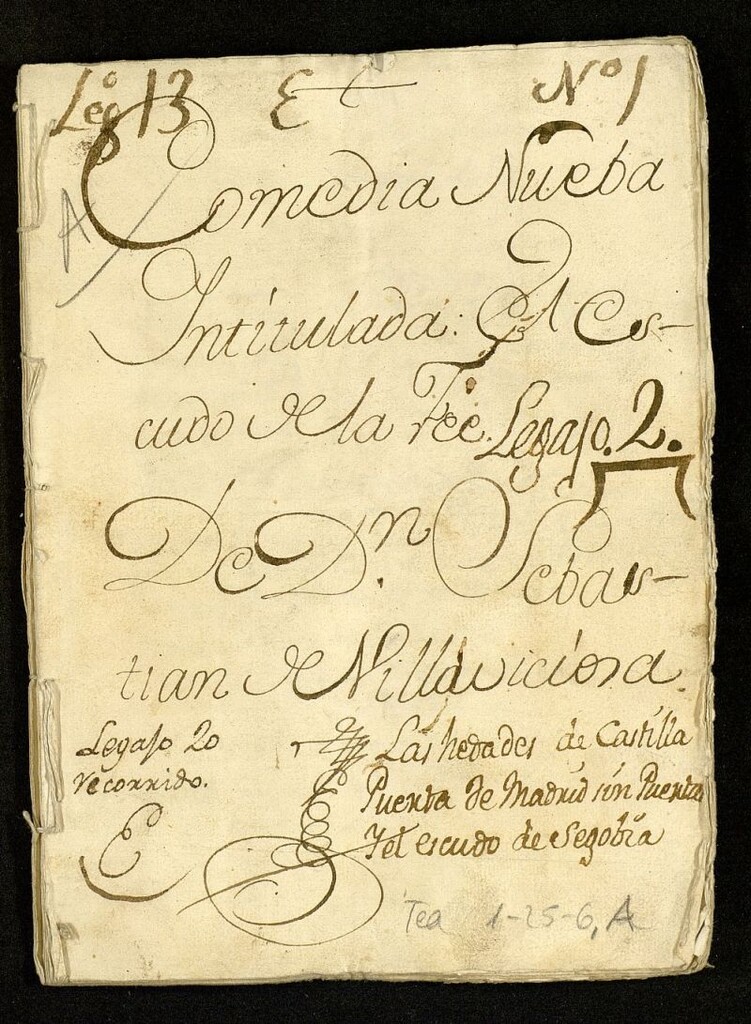 Lego 13 E No 1
A
Comedia Nueba
Intitulada: El Es-
cudo de la Fee. Legajo. 2.
De Dn. Sebas-
tian de Villaviciosa
Legajo 20
recorrido.
E
Las hedades de Castilla
Puerta de Madrid sin Puertas
Y el escudo de Segobia
Tea 1-25-6, A